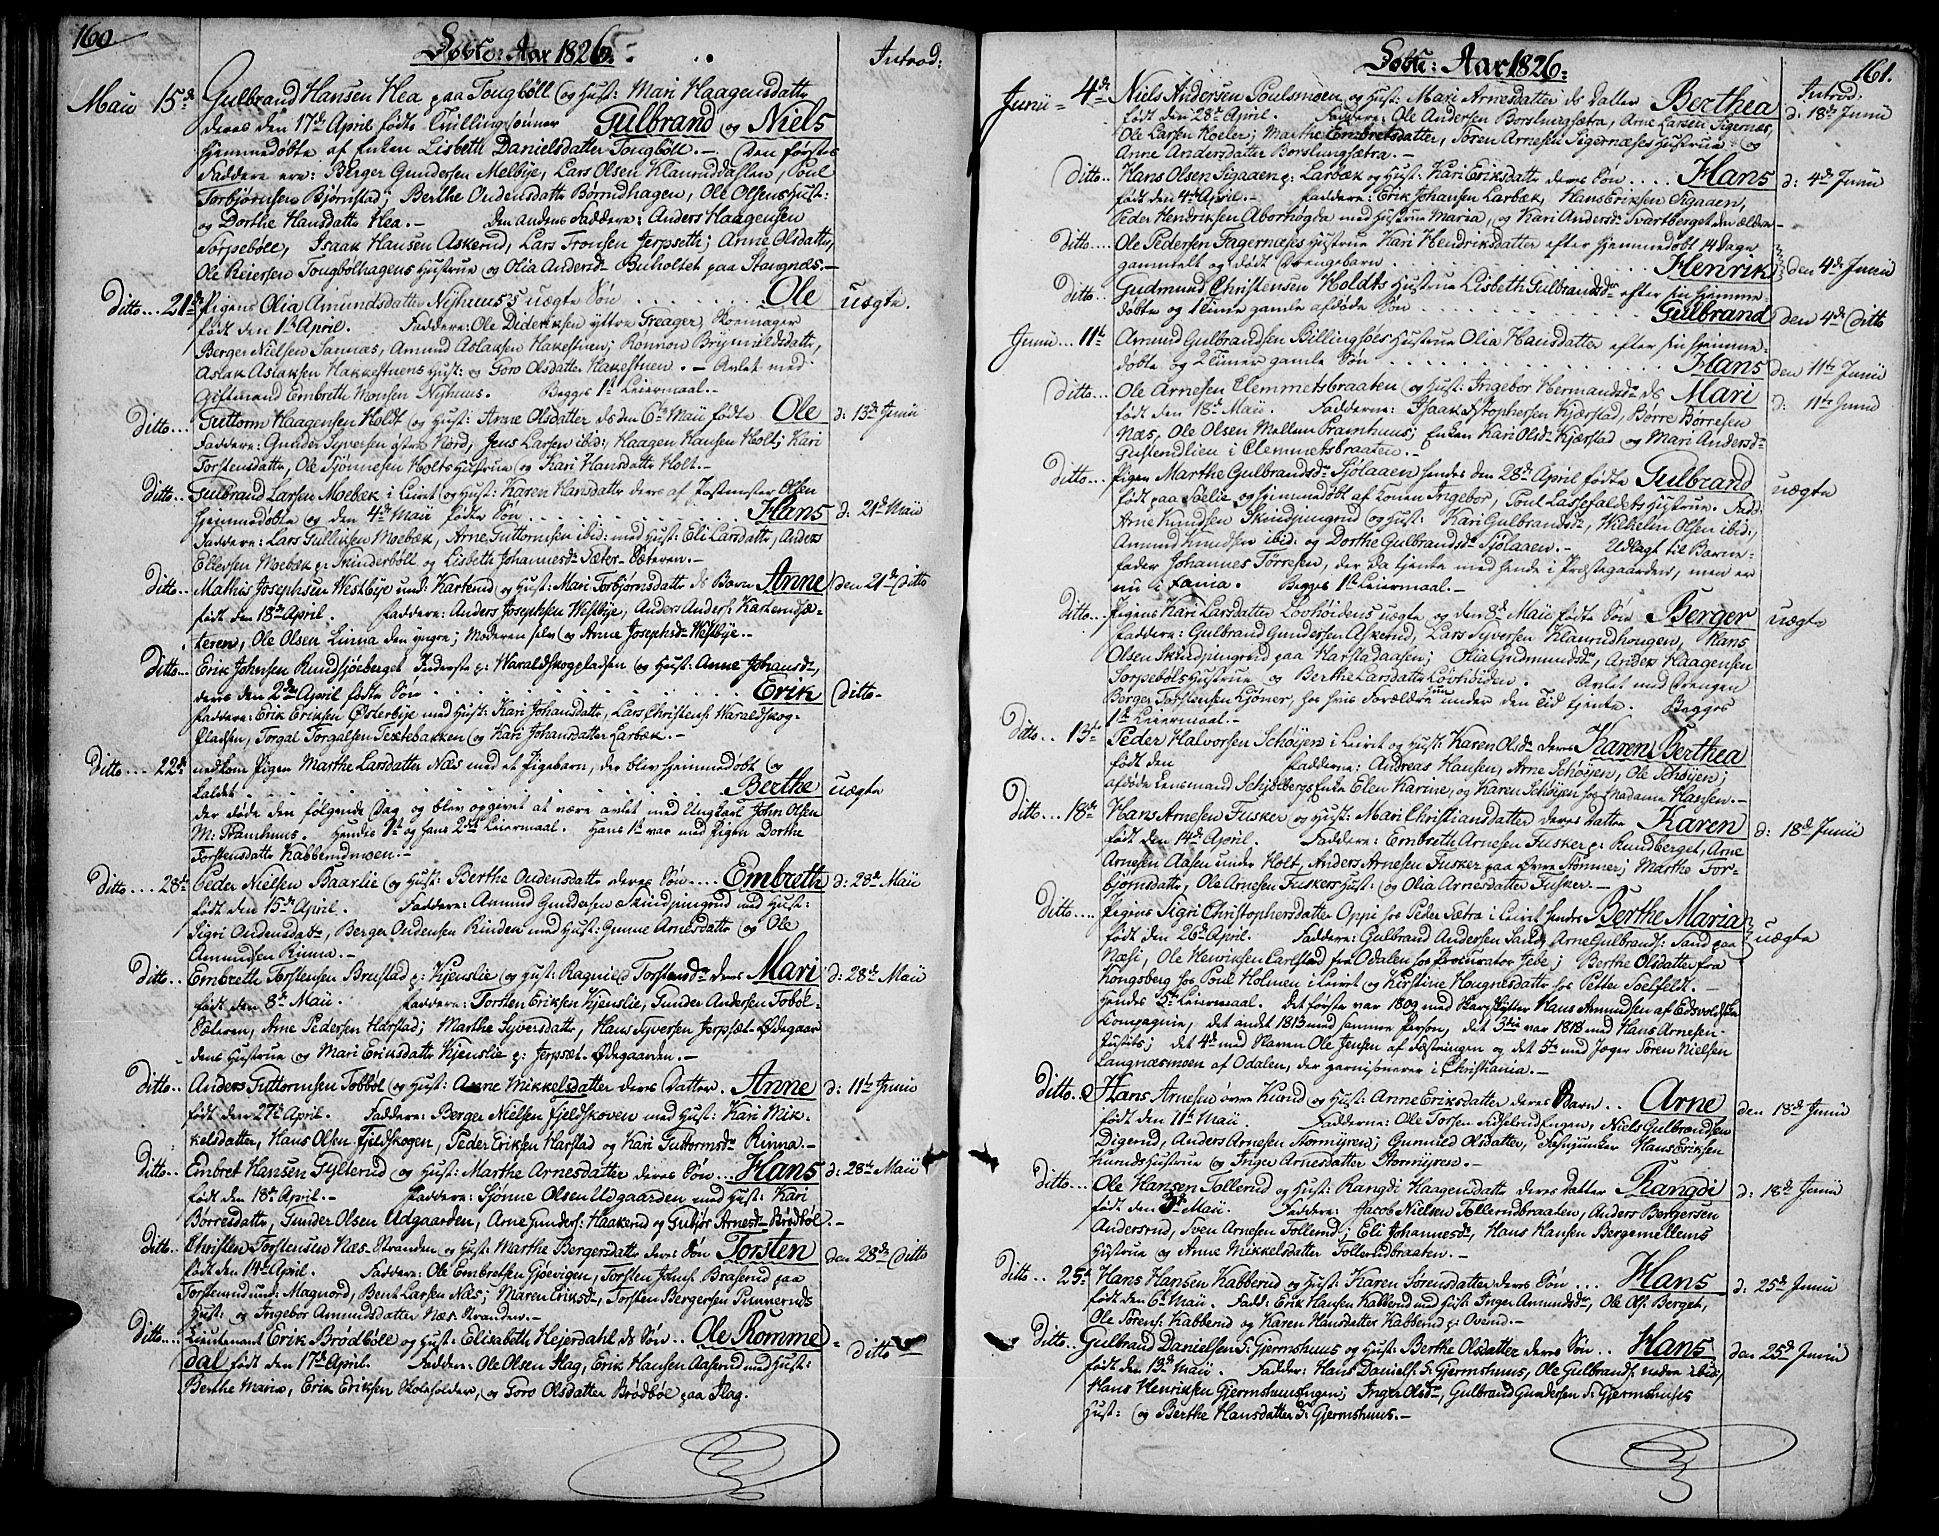 160.
Døbte: Aar 1826.
Introd:
Maii 15de Gulbrand Hansen Hea paa Tougbøll og Hust: Mari Haagensdatter
deres den 17de April fødte tvillingsønner Gulbrand og Niels
hjemmedøbte af Enken Lisbeth Danielsdatter Tougbøll. — Den førstes
Faddere ere: Berger Gundersen Melbye, Lars Olsen Klanruddahlen, Poul
Torbjørnsen Bjørnstad; Berthe Oudensdatter Børrudhagen, Ole Olsens Hust:
og Dorthe Hansdatter Hea. — Den Andens Faddere: Anders Haagensen
Torpebøll, Isaak Hansen Askerud, Lars Tronsen Jerpseth; Anne Olsdatter,
Ole Reiersen Tougbølhagens Hustrue og Olia Andersd: Buholtet paa Stangnæs. —
Ditto... 21de Pigen Olia Amundsdatter Nyhuus's uægte Søn ...... Ole uægte.
født den 1ste April. Faddere: Ole Dideriksen yttre Greager, Skoemager
Berger Nielsen Sannæs, Amund Aslaksen Hakestuen; Rønnou Brynnildsdatter,
Aslak Aslaksen Hakkestuens Hust: og Goro Olsdatter Hakestuen. — Avlet med
Giftmand Embreth Monsen Nyhuus. Begges 1ste Leiermaal. —
Ditto... Guttorm Haagensen Holt og Hust: Anne Olsdatter ds den 6te Maii fødte Ole d: 13de Junii
Faddere: Gunder Syversen østre Nord, Jens Larsen ibid: Haagen Hansen Holt; Kari
Torstensdatter, Ole Sjønnesen Holts Hustrue og Kari Hansdatter Holt. —
Ditto... Gulbrand Larsen Moebæk i Leiret og Hust: Karen Hansdatter deres af Postmester Olsen
hjemmedøbte og den 4de Maii fødte Søn ...... Hans d: 21de Maii
Faddere: Lars Gulliksen Moebæk, Arne Guttormsen ibid: med Hust: Eli Larsdatter, Anders
Ellevsen Moebæk p: Skinderbøll og Lisbeth Johannesd: Sæter-Sæteren. —
Ditto... Mathis Josephsen Westbye und: Karterud og Hust: Mari Torbjørnsdatter ds Barn Anne den 21de Ditto
født den 18de April. Faddere: Anders Josephsen Westbye, Anders Anders: Karterudsæ-
teren, Ole Olsen Linna den yngre; Moderen selv og Anne Josephsd: Westbye. —
Ditto... Erik Johnsen Rundsjøeberget Inderste p: Waraldskogpladsen og Hust: Anne Johansd:
deres den 2den April fødte Søn ...... Erik Ditto
Faddere: Erik Eriksen Østerbye med Hust: Kari Johansdatter, Lars Christens: Waraldskog-
Pladsen, Torgal Torgalsen Textebakken og Kari Johansdatter Larbæk. —
Ditto... 22de nedkom Pigen Marthe Larsdatter Næs med et Pigebarn, der blev hjemmedøbt og
kaldet ...... Berthe uægte
der døde den følgende Dag og blev opgivet at være avlet med Ungkarl John Olsen
M: Framhuus. Hendes 1ste og hans 2det Leiermaal. Hans 1ste var med Pigen Dorthe
Torstensdatter Kabberudmoen. —
Ditto.... 28de Peder Nielsen Baarlie og Hust: Berthe Oudensdatter deres Søn .... Embreth d: 28de Maii
født den 15de April. Faddere: Amund Gundersen Skindpungrud med Hust:
Sigri Oudensdatter, Berger Oudensen Rinden med Hust: Gunne Arnesdatter og Ole
Amundsen Rinna. —
Ditto... Embreth Torstensen Brustad p: Kjenslie og Hust: Ragnild Torstensd: deres Mari d: 28de Maii
født den 8de Maii. Faddere: Torsten Eriksen Kjenslie, Gunder Andersen Tobøl-
Sæteren, Arne Pedersen Harstad; Marthe Syversdatter, Hans Syversen Jerpset-Ødegaar
dens Hustrue og Mari Eriksdatter Kjenslie p: Jerpset-Ødegaarden. —
Ditto.. Anders Guttormsen Tobbøl og Hust: Anne Mikkelsdatter deres Datter Anne d: 11te Junii
født den 27de April. Faddere: Berger Nielsen Fjeldskoven med Hust: Kari Mik-
kelsdatter, Hans Olsen Fjeldskogen, Peder Eriksen Harstad og Kari Guttormsd: Rinna. —
Ditto.. Embret Hansen Gylterud og Hust: Marthe Arnesdatter deres Søn ... Hans d: 28de Maii
født den 18de April. — Faddere: Sjønne Olsen Udgaarden med Hust: Kari
Børresdatter, Gunder Olsen Udgaarden, Arne Gunders: Haakerud og Gubjør Arnesd: Brødbøl. —
Ditto.. Christen Torstensen Næs-Stranden og Hust: Marthe Bergersdatter deres Søn Torsten den 28de Ditto
født den 14de April. Faddere: Ole Embretsen Gjøevigen, Torsten Johns: Braserud paa
Torsterud und: Magnord, Bent Larsen Næs; Maren Eriksd:, Torsten Bergersen Punneruds
Hust: og Ingebor Amundsdatter Næs-Stranden. —
Ditto.... Lieutenant Erik Brødbøll og Hust: Elisabeth Hejerdahl ds Søn .. Ole Romme-
dal født den 17de April. Faddere: Ole Olsen Flag, Erik Hansen Aaserud med Hust: Ditto
Berthe Marie, Erik Eriksen Skoleholder, og Goro Olsdatter Brødbøe paa Flag.
161.
Døbte: Aar 1826.
Introd:
Junii 4de Niels Andersen Poulsmoen og Hust: Mari Arnesdatter ds Datter Berthea
født den 28de April. Faddere: Ole Andersen Borslungsætra, Arne Larsen Sigernæs, d: 18de Junii
Ole Larsen Koeler; Marthe Embretsdatter, Søren Arnesen Sigernæses Hustrue og
Anne Andersdatter Borslungsætra. —
Ditto.. Hans Olsen Sigaaen p: Larbæk og Hust: Kari Eriksdatter deres Søn .... Hans d: 4de Junii
født den 4de April. — Faddere: Erik Johansen Larbæk, Hans Eriksen Sigaaen,
Peder Hendriksen Aborhøgda med Hustrue Maria, og Kari Andersd: Svartberget den ældre —
Ditto.... Ole Pedersen Fagernæses Hustrue Kari Hendriksdatter efter hjemmedøbt 14 Dage
gammelt og dødt Drengebarn ...... Henrik den 4de Junii
Ditto... Gudmund Christensen Holdts Hustrue Lisbeth Gulbrandsd: efter sin hjemme
døbte og 1 Time gamle afdøde Søn ...... Gulbrand den 4de Ditto
Junii... 11te Amund Gulbrandsen Billingsøes Hustrue Olia Hansdatter efter sin hjemme-
døbte og 2 Timer gamle Søn ...... Hans den 11te Junii
Ditto... Ole Arnesen Clemmetsbraaten og Hust: Ingebor Hermandsd: ds Mari d: 11te Junii
født den 18de Maii. Fadderne: Isaak Stophersen Kjerstad, Børre Børresen
Næs, Ole Olsen Mellem Framhuus; Enken Kari Olsd: Kjærstad og Mari Andersd:
Gustendlien i Clemmetsbraaten. —
Ditto... Pigen Marthe Gulbrandsd: Sjølaaen hendes den 28de April fødte Gulbrand uægte
født paa Sælie og hjemmedøbt af Konen Ingebor, Poul Lassefaldets Hustrue. Fadd:
Arne Knudsen Skindpungrud og Hust: Kari Gulbrandsd:, Wilhelm Olsen ibid:,
Amund Knudsen ibid: og Dorthe Gulbrandsd: Sjølaaen. — Udlagt til Barne-
fader Johannes Tørresen, der da tjente med hende i Præstegaarden, men er
nu i Fania. Begges 1ste Leiermaal. —
Ditto.. Pigens Kari Larsdatter Lovhøidens uægte og den 8de Maii fødte Søn Berger uægte
Faddere: Gulbrand Gundersen Askerud, Lars Syversen Klanrudhougen, Hans
Olsen Skindpungrud paa Harstadaasen; Olia Gudmundsd:, Anders Haagensen
Torpebøls Hustrue og Berthe Larsdatter Lovhøiden. Avlet med Drengen
Berger Torstensen Kjøner, hos hvis Forældre hun under den Tid tjente. Begges
1ste Leiermaal. —
Ditto.. 13de Peder Halvorsen Schøyen i Leiret og Hust: Karen Olsd: deres Karen Berthea
født den Fadderne: Andreas Hansen, Arne Schøyen, Ole Schøyen;
afdøde Lensmand Schjølbergs Enke Elen Karine, og Karen Schøyen hos Madame Hansen. —
Ditto... 18de Hans Arnesen Fusker og Hust: Mari Christiansdatter deres Datter Karen d: 18de Junii
født den 14de April. Faddere: Embreth Arnesen Fusker p: Rundberget, Arne
Arnesen Aasen under Holt, Anders Arnesen Fusker paa Øvre Stømner; Marthe Tor-
bjørnsdatter, Ole Arnesen Fuskers Hust: og Olia Arnesdatter Fusker. —
Ditto..... Pigens Sigri Christophersdatter Oppi hos Peder Sætra i Leiret hendes Berthe Maria uægte
født den 26de April. Faddere: Gulbrand Andersen Sand, Arne Gulbrands: Sand paa
Næsi, Ole Henriksen Carlstad fra Odalen hos Procurator Jebe; Berthe Olsdatter fra
Kongsberg hos Poul Holmen i Leiret og Kirstine Hougnesdatter hos Petter Soelfeldt. —
Hendes 5te Leiermaal. Det første var 1809 med Hans Amundsen af Eidsvoldske
Compagnie, det andet 1813 med samme Person, det 3die var 1818 med Hans Arnesen
; det 4de med Slaven Ole Jensen af Fæstningen og det 5te med Jæger Søren Nielsen
Langnæsmoen af Odalen, der garnisonerer i Christiania. —
Ditto.. Hans Arnesen øvre Kurud og Hust: Anne Eriksdatter deres Barn .. Arne den 18de Junii
født den 11te Maii. Fadderne: Ole Torsen Aasebrudengen, Niels Gulbrandsen
Digerud, Anders Arnesen Stormyren; Gunnild Olsdatter, Hans Eriksen
Kuruds Hustrue og Inger Arnesdatter Stormyren. —
Ditto.. Ole Hansen Tollerud og Hust: Rangdi Haagensdatter deres Datter Rangdi d: 18de Junii
født den 3de Maii. Faddere: Jacob Nielsen Tollerudbraaten, Anders Bergersen
Andersrud, Sven Arnesen Tollerud; Eli Johannesd:, Hans Hansen Bergemellems
Hustrue og Anne Mikkelsdatter Tollerudbraaten. —
Ditto.. 25de Hans Hansen Kabberud og Hust: Karen Sørensdatter deres Søn ... Hans d: 25de Junii
født den 6te Maii. Fadd: Erik Hansen Kabberud med Hust: Inger Amundsd:, Ole Ols: Berget,
Ole Sørens: Kabberud og Karen Hansdatter Kabberud p: Overud. —
Ditto.. Gulbrand Danielsen S: Gjermshuus og Hust: Berthe Olsdatter deres Søn .. Hans den 25de Junii
født den 13de Maii. Fadder: Hans Daniels: S: Gjermshuus, Ole Gulbrands: nedre ibid:,
Hans Henriksen GjermshuusEngen; Inger Olsd:, Gulbrand Gundersen S: Gjermshuses
Hust: og Berthe Hansdatter S: Gjermshuus. —